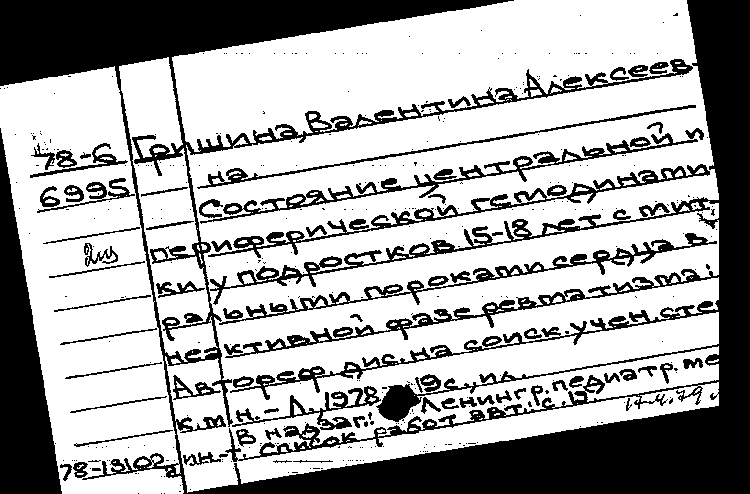 78-6 Гришина, Валентина Алексеев-
6995 на.
Состояние центральной и
2из периферической гемодинами-
ки у подростков 15-18 лет с мит-
ральными пороками сердца в
неактивной фазе ревматизма:
Автореф. дис. на соиск. учен. сте
к.м.н. - Л., 1978. 19с., ил.
В надзаг.: Ленингр. педиатр. ме
ин-т. Список работ авт.: с. 19
78-13102а 17.4.79